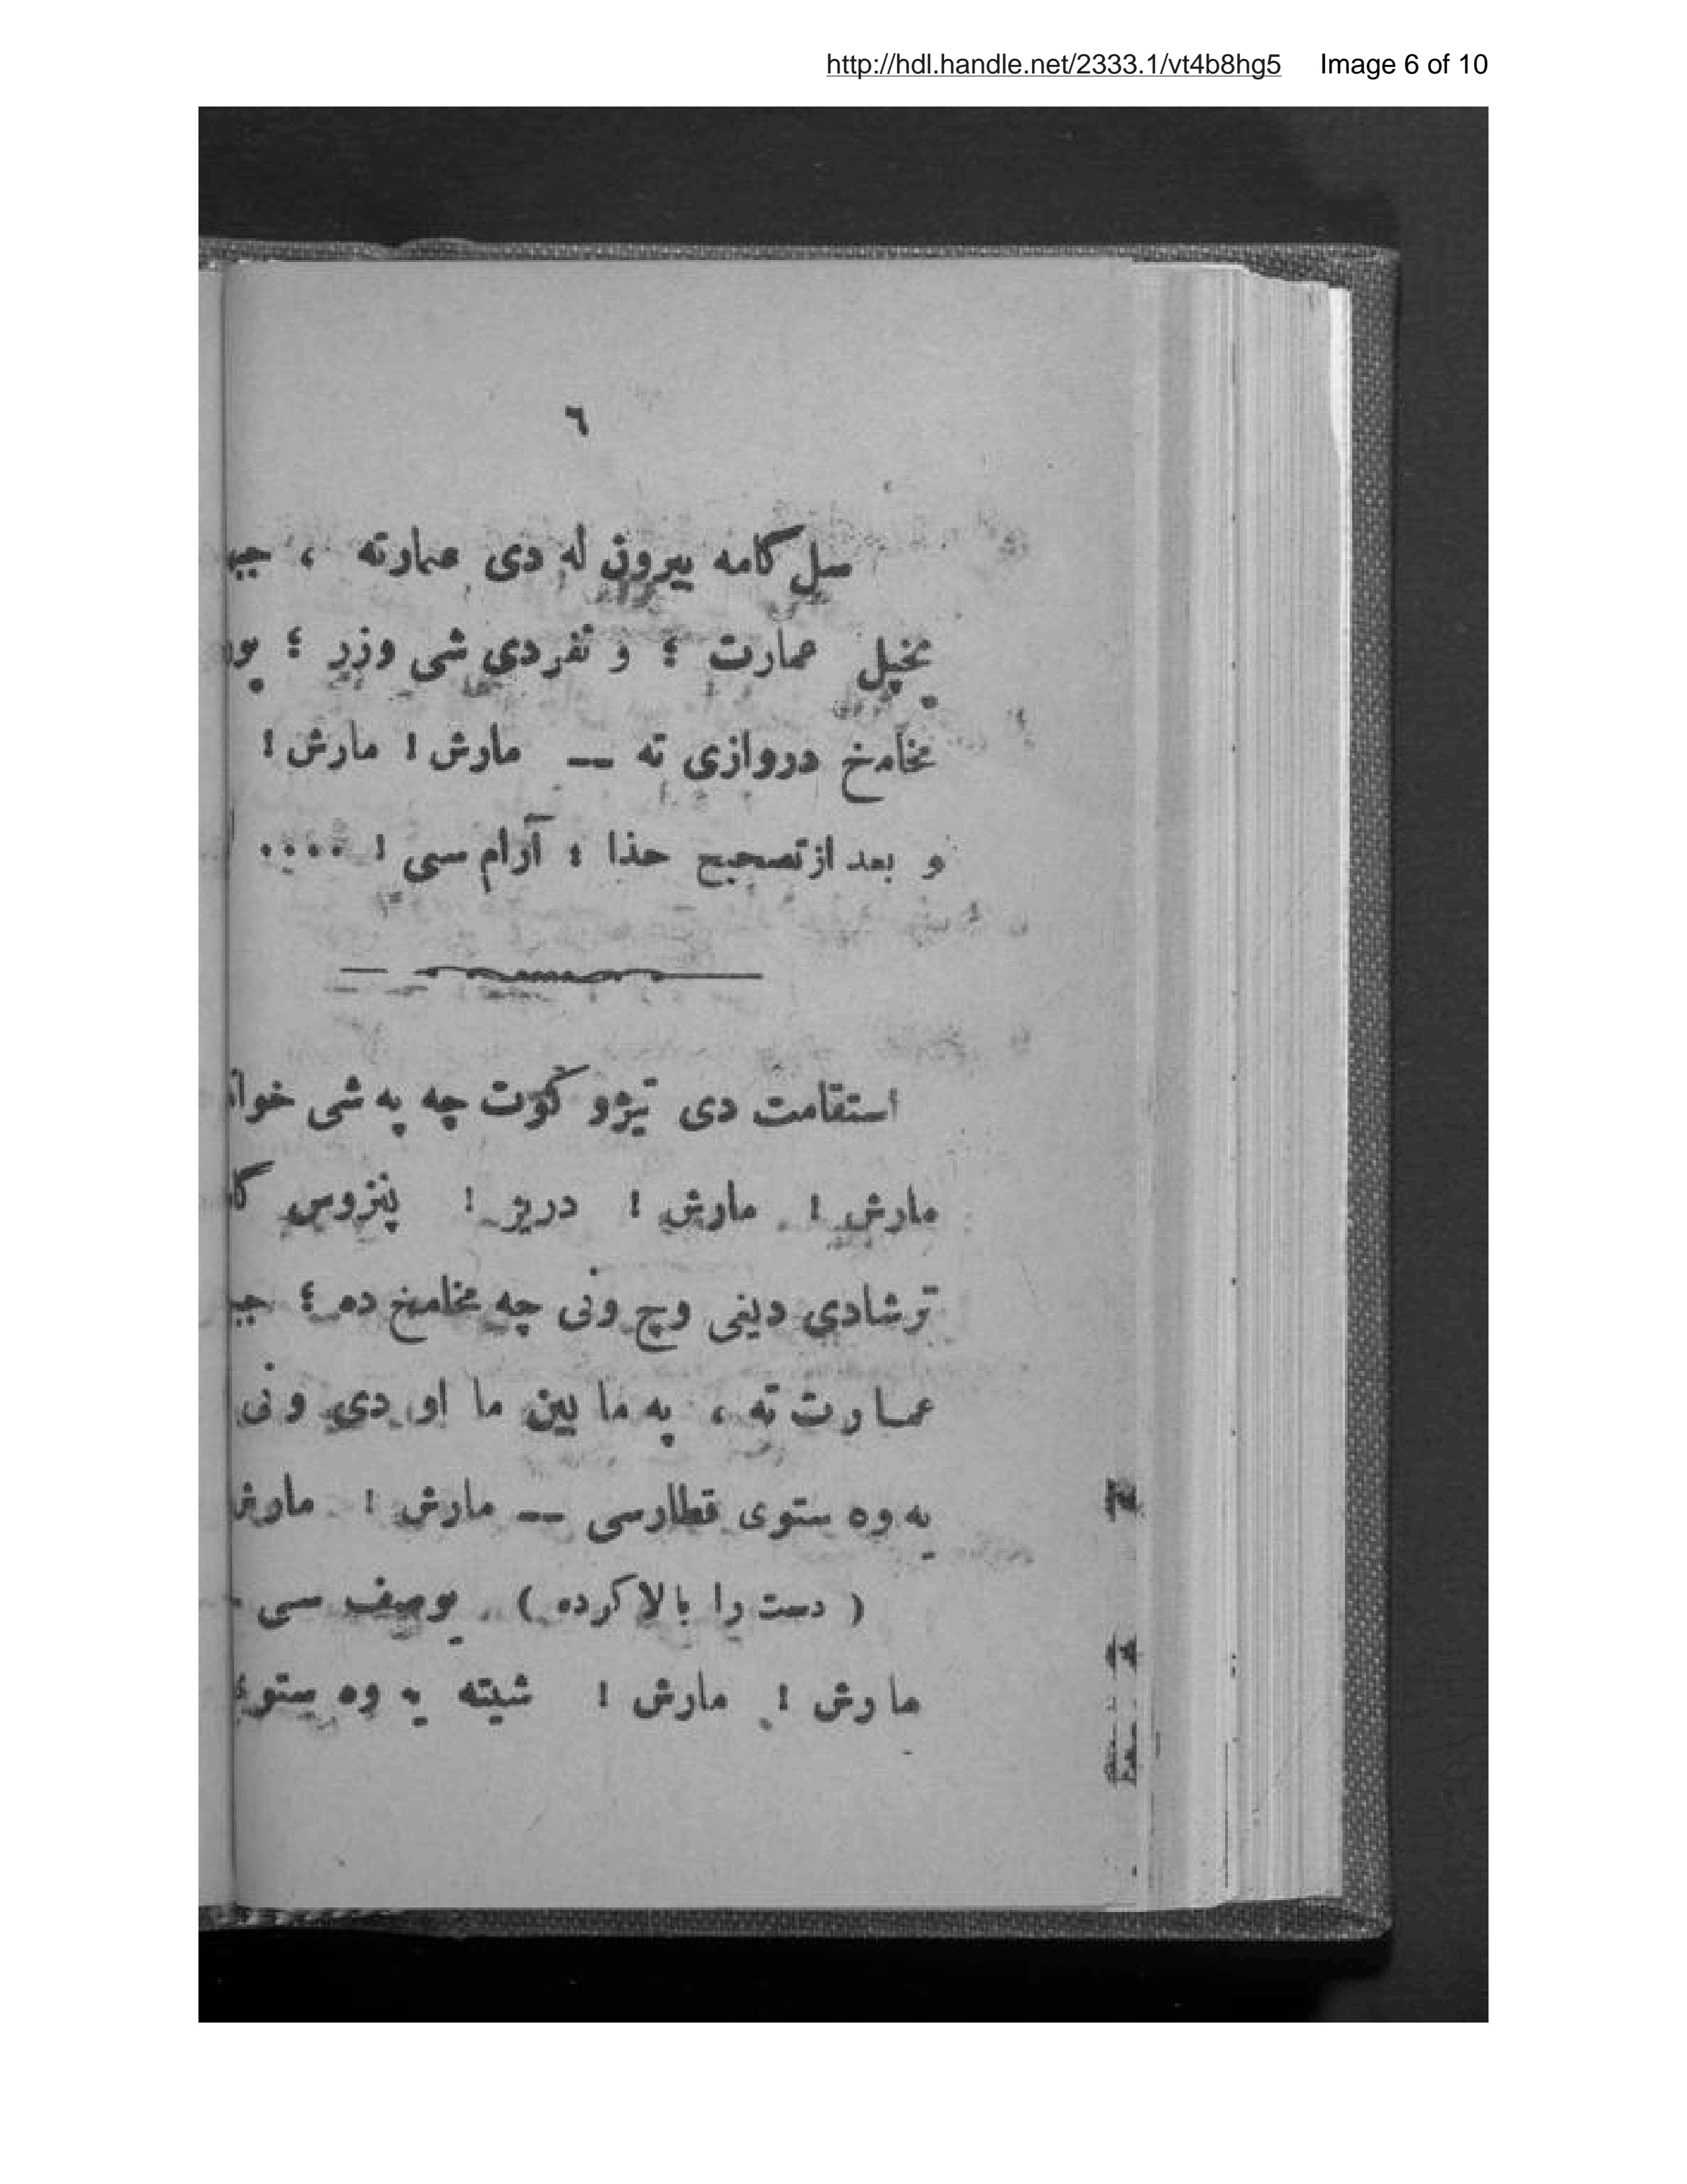 http://hdl.handle.net/2333.1/vt4b8hg5 Image 6 of 10
٦
سل کامه بیرون له دی عمارته ،
پخپل عمارت ؛ و نفر دی شی وزر ؛
مخامخ دروازی ته — مارش ! مارش !
و بعد از تصحیح حذا ؛ آرام سی ! ....
استقامت دی تیژو کوت چه په شی
مارش ! مارش ! دریز ! پنزوس
ترشادی دینی وچ ونی چه مخامخ ده ؛
عمارت ته ، په ما بین ما او دی ونی
په وه ستوی قطارسی — مارش !
( دست را بالا کرده ) پوصف سی
مارش ! مارش ! شیته په وه